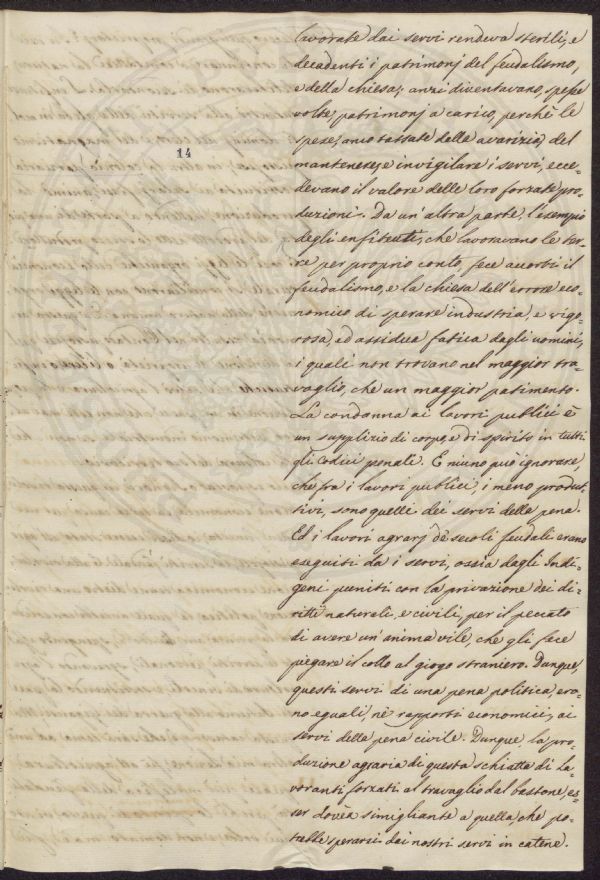 lavorate dai servi rendeva sterili, e
decadenti i patrimonj del feudalismo,
e della chiesa; anzi diventavano, spesse
volte, patrimonj a carico, perchè le
spese, anco tassate delle avarizia, del
mantenere, e invigilare i servi, ecce-
devano il valore delle loro forzate pro-
duzioni. Da un'altra parte, l'esempio
degli enfiteuti, che lavoravano le ter-
re per proprio conto, fece accorti il
feudalismo, e la chiesa dell'errore eco-
nomico di sperare industria, e vigo-
rosa, ed assidua fatica dagli uomini,
i quali non trovano nel maggior tra-
vaglio, che un maggior patimento.
La condanna ai lavori publici è
un supplizio di corpo, e di spirito in tutti
gli Codici penali. E niuno può ignorare,
che fra i lavori publici, i meno produt-
tivi, sono quelli dei servi della pena.
Ed i lavori agrarj de' secoli feudali erano
eseguiti da i servi, ossia dagli Indi-
geni puniti con la privazione dei di-
ritti naturali, e civili, per il peccato
di avere un'anima vile, che gli fece
piegare il collo al giogo straniero. Dunque,
questi servi di una pena politica, era-
no eguali, nè rapporti economici, ai
servi della pena civile. Dunque, la pro-
duzione agraria di questa schiatta di la-
voranti forzati al travaglio dal bastone, es-
ser dovea simigliante a quella, che po-
trebbe sperarsi dai nostri servi in catene.
14